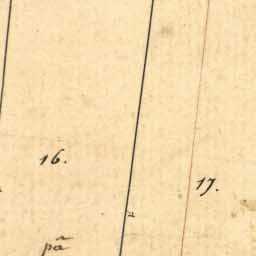 16.
17.
pa